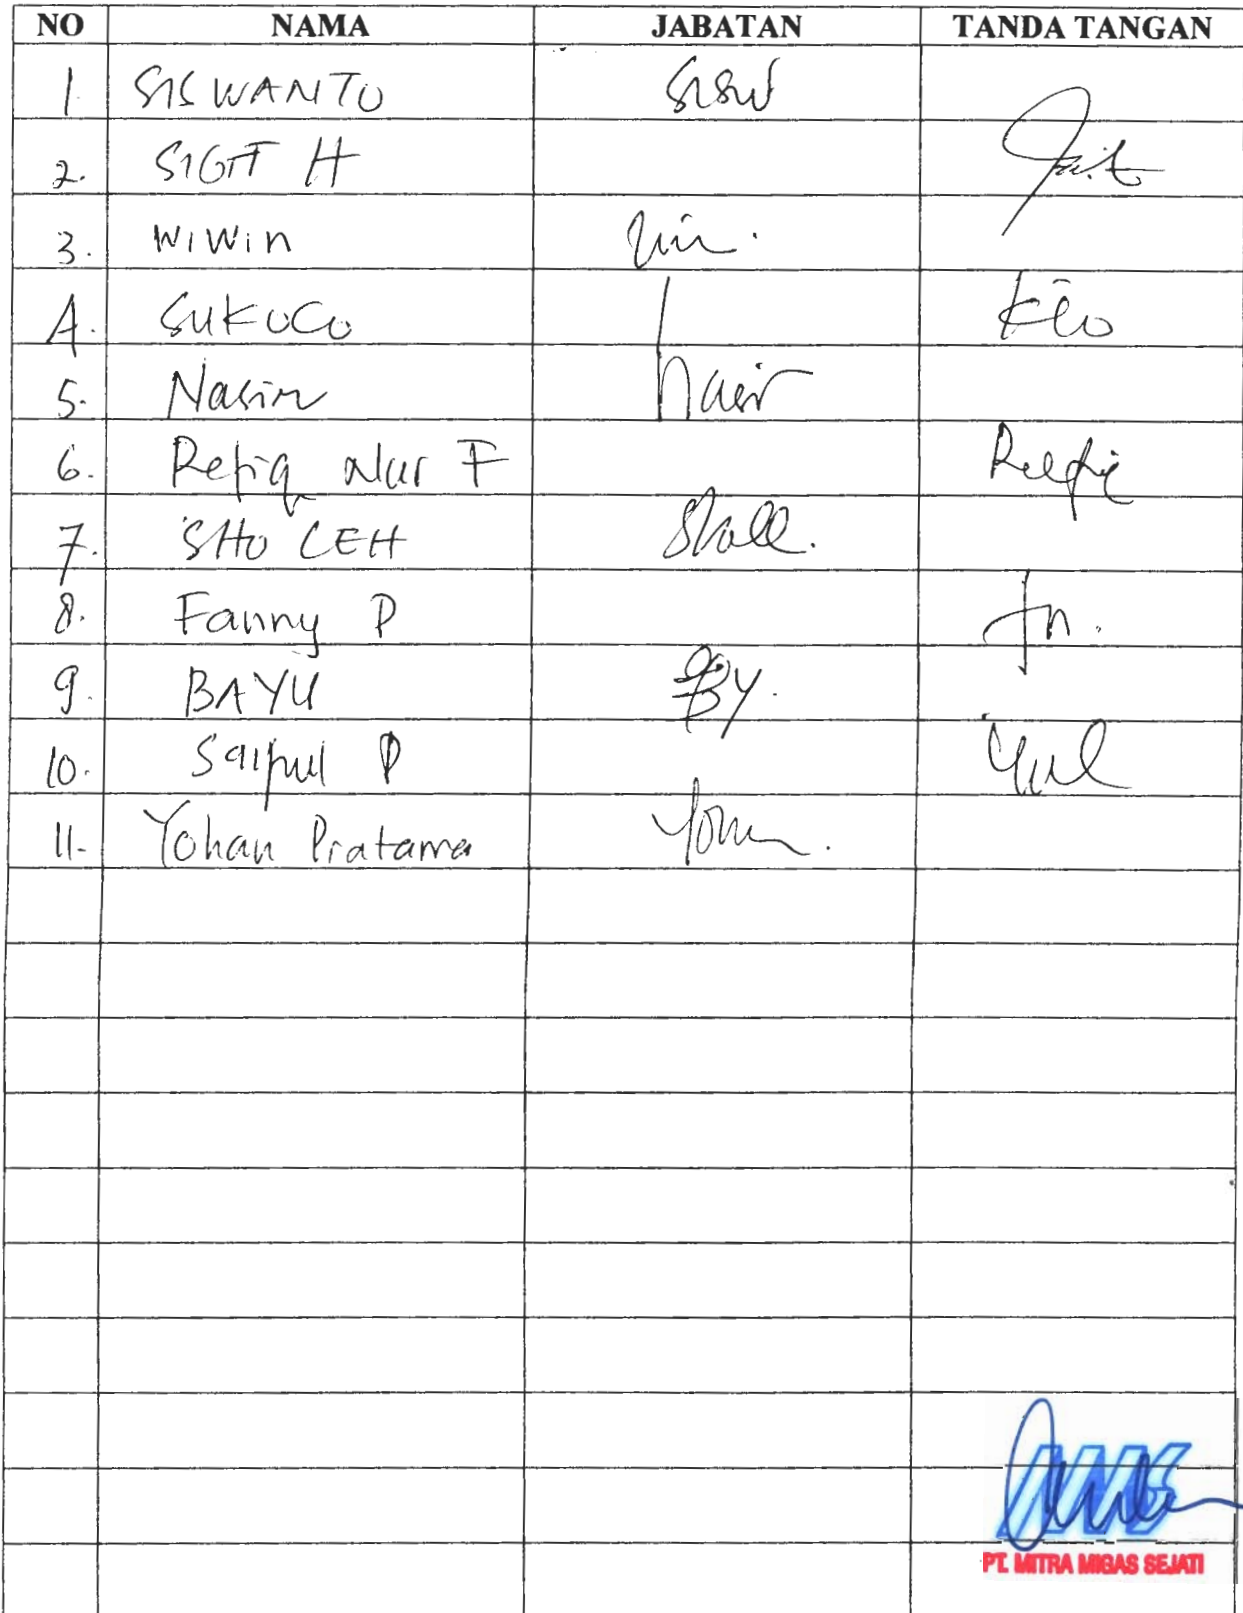 NO NAMA JABATAN TANDA TANGAN
1 SISWANTO Sisw
2. SIGIT H
3. WIWIn Win.
4. SUKOCO
5. Nasir Nasir
6. Refiq Nur F Refiq
7. SHOLEH Sholl.
8. Fanny P Fn.
9. BAYU By.
10. Saipul P
11. Yohan Pratama
PT. MITRA MIGAS SEJATI